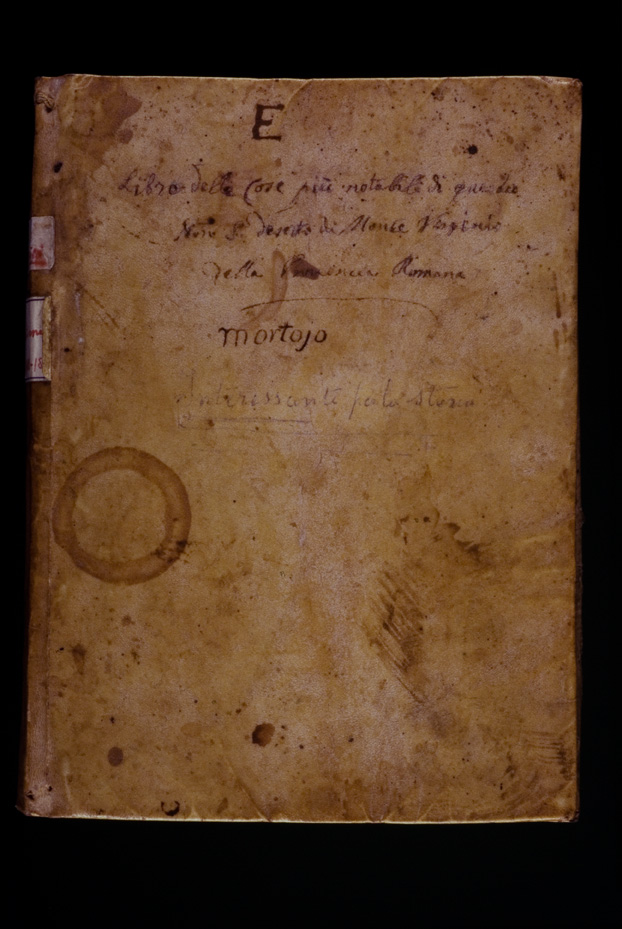 E
Libro delle cose più notabile di questo
Nro S. deserto di Monte Virginio
della Provincia Romana
mortojo
Interessante per la storia